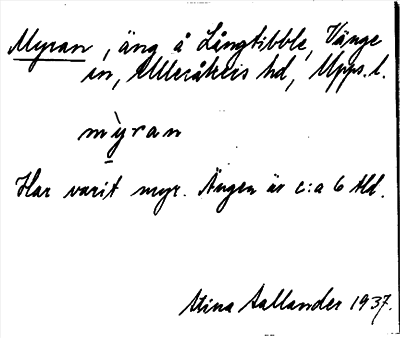 Myran, äng å Långtibble, Vänge
sn, Ulleråkers hd, Upps. l.
mỳran
Har varit myr. Ängen är c:a 6 tld.
Stina Aallander 1937.